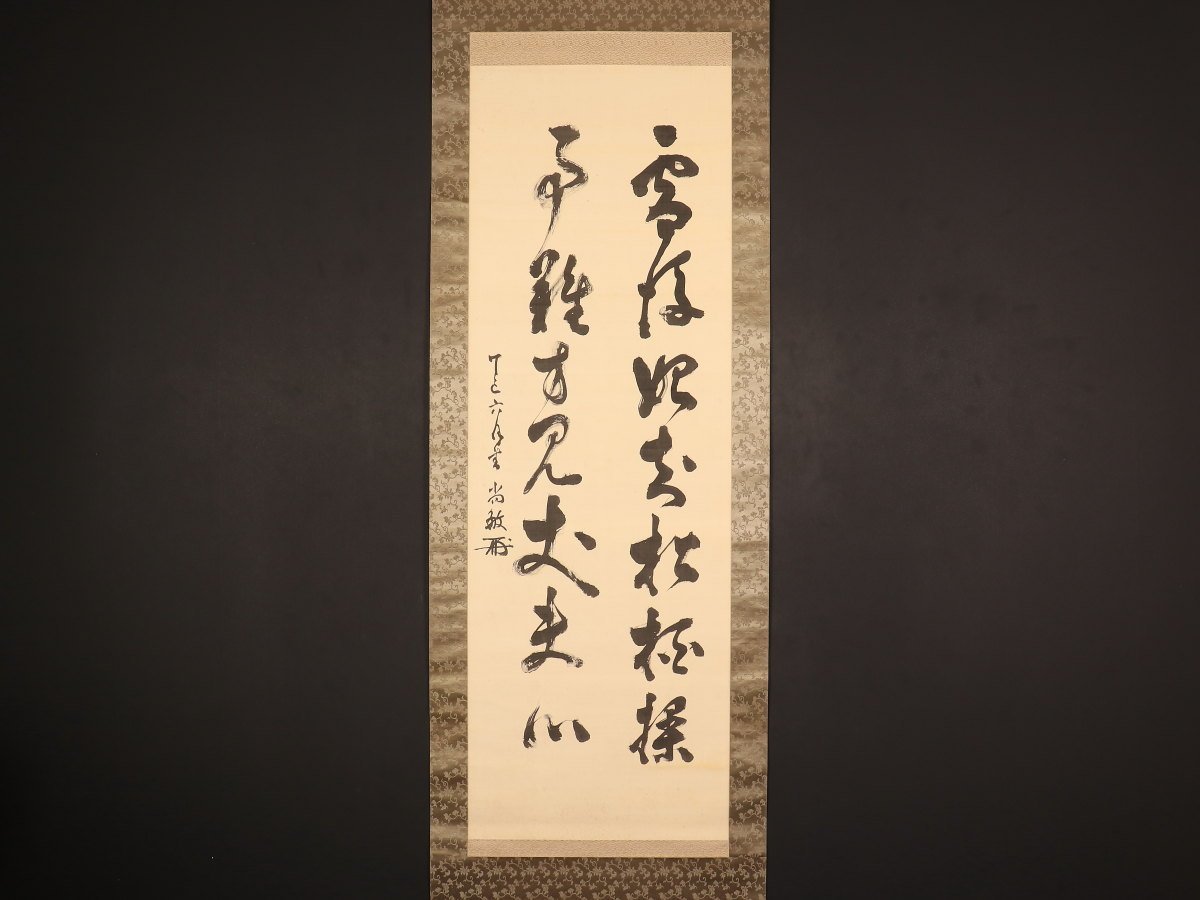 雪後始知松栢操
事難方見丈夫心
丁巳六月書 尚敏